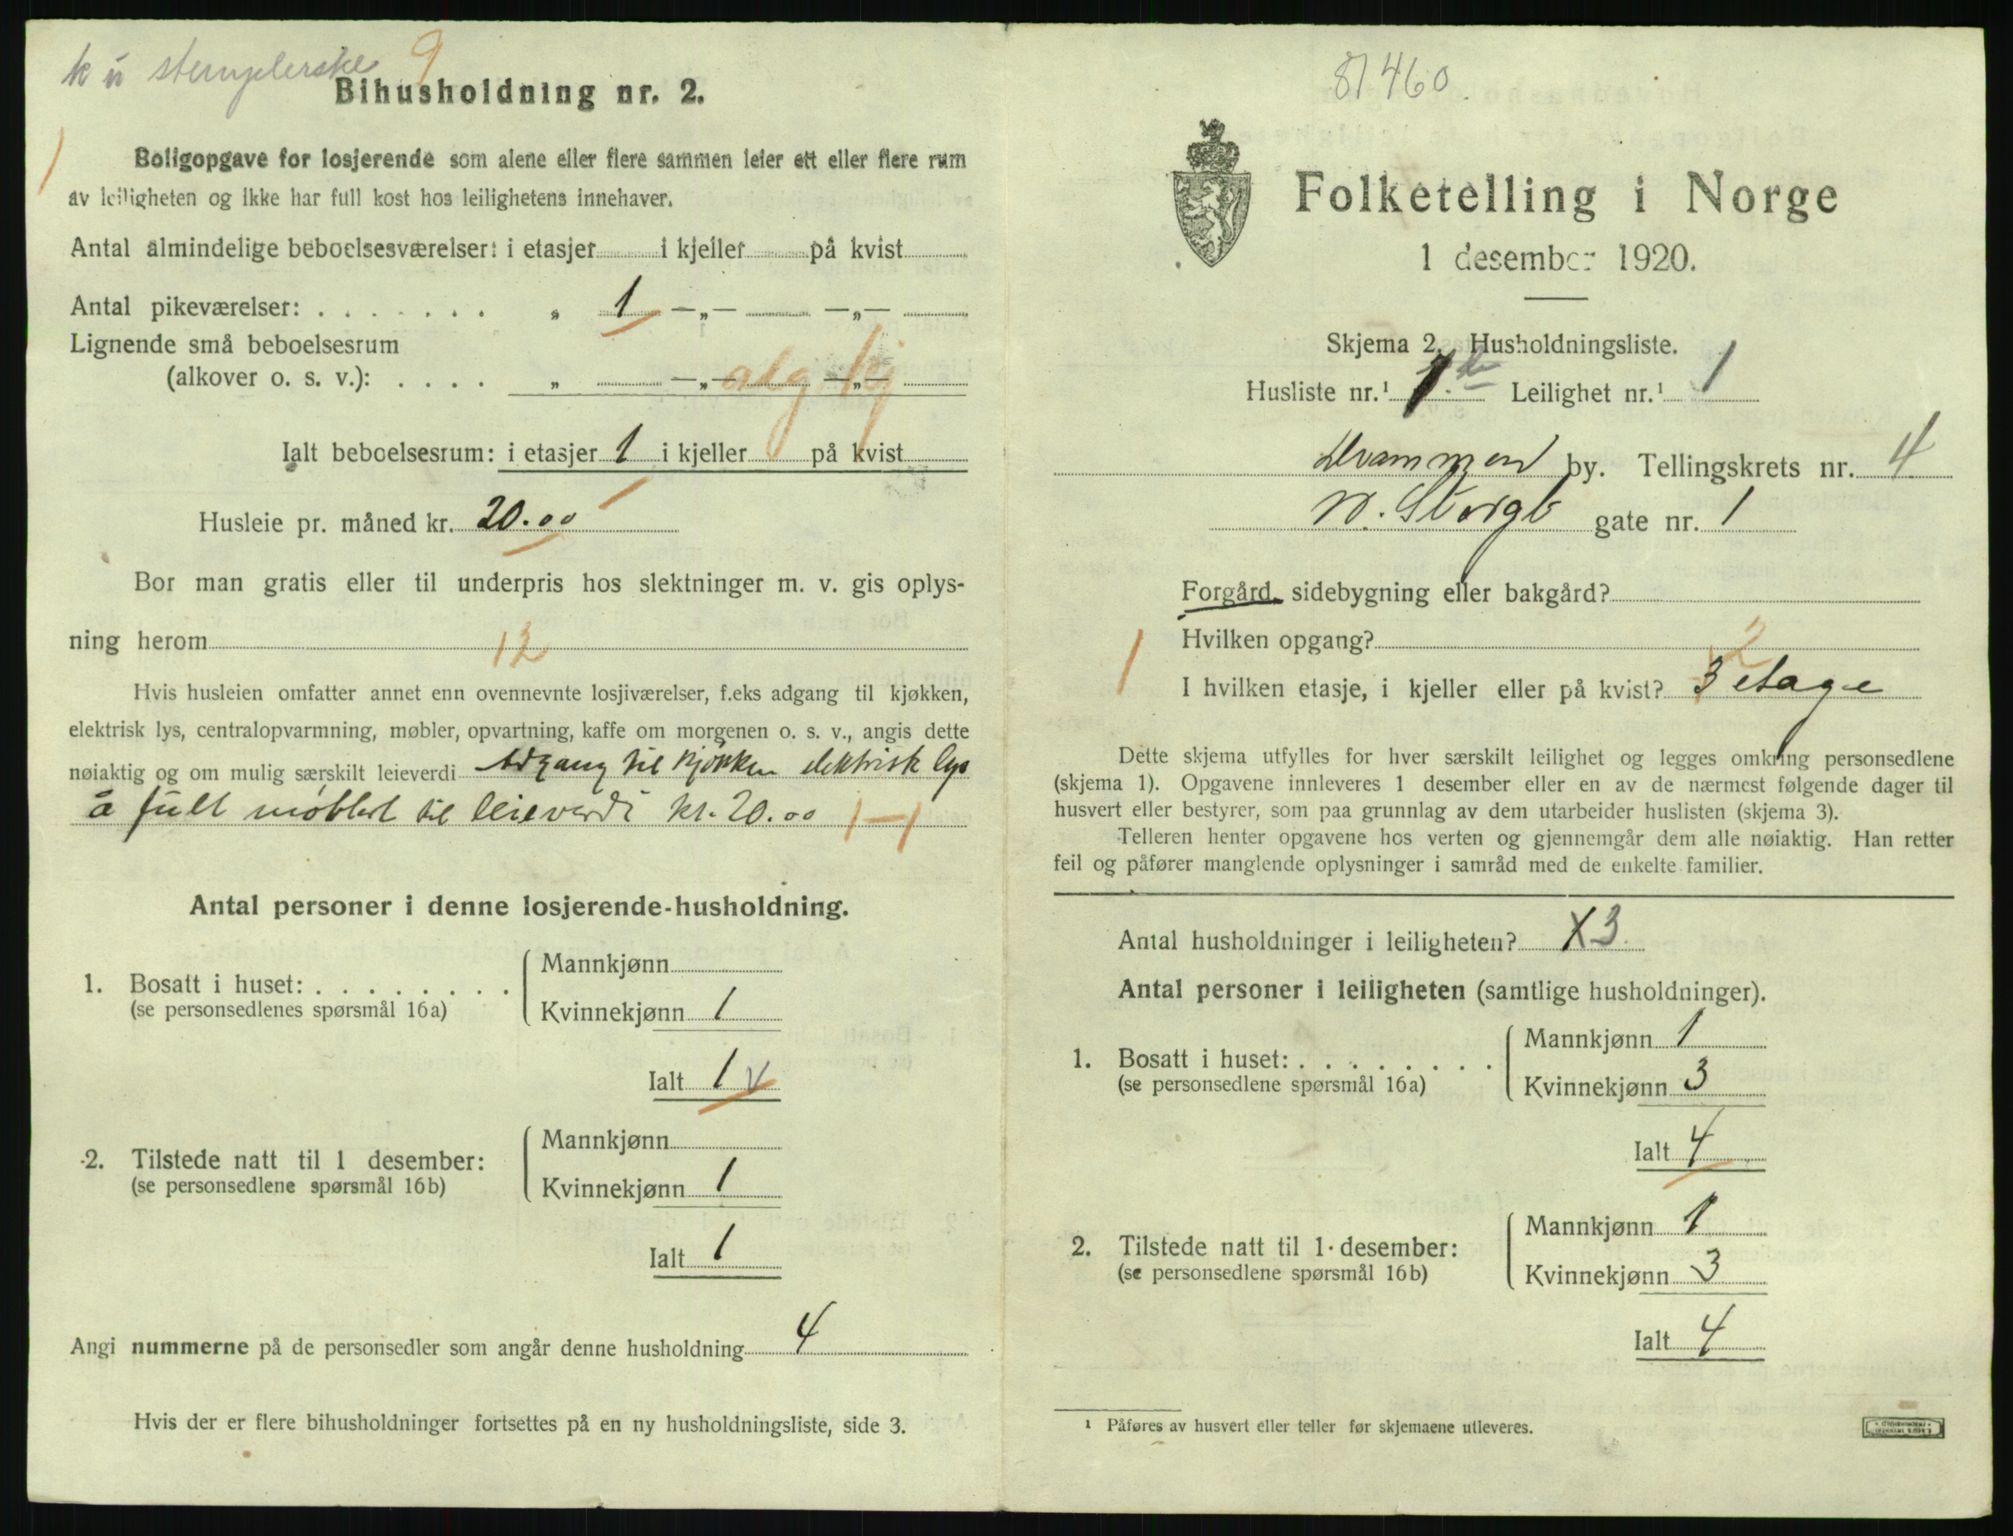 k ü stemplerske 9
Bihusholdning nr. 2.
1
Boligopgave for losjerende som alene eller flere sammen leier ett eller flere rum
av leiligheten og ikke har full kost hos leilighetens innehaver.
Antal almindelige beboelsesværelser: i etasjer i kjeller på kvist
Antal pikeværelser: . . . . . . . „ 1 —„— —„—
Lignende små beboelsesrum
(alkover o. s. v.): . . . . „ —„— —„—
alg kj
Ialt beboelsesrum: i etasjer 1 i kjeller på kvist
Husleie pr. måned kr. 20.00
Bor man gratis eller til underpris hos slektninger m. v. gis oplys-
ning herom
12
Hvis husleien omfatter annet enn ovennevnte losjiværelser, f.eks adgang til kjøkken,
elektrisk lys, centralopvarmning, møbler, opvartning, kaffe om morgenen o. s. v., angis dette
nøiaktig og om mulig særskilt leieverdi Adgang til kjøkken elektrisk lys
å fult møblert til leieverdi kr. 20.00 1—1
Antal personer i denne losjerende-husholdning.
1. Bosatt i huset: . . . . . . . .
(se personsedlenes spørsmål 16a)
Mannkjønn
Kvinnekjønn 1
Ialt 1
2. Tilstede natt til 1 desember:
(se personsedlene spørsmål 16b)
Mannkjønn
Kvinnekjønn 1
Ialt 1
Angi nummerne på de personsedler som angår denne husholdning 4
Hvis der er flere bihusholdninger fortsettes på en ny husholdningsliste, side 3.
81460
Folketelling i Norge
1 desember 1920.
Skjema 2. Husholdningsliste.
Husliste nr.¹ 1 Leilighet nr.¹ 1
Drammen by. Tellingskrets nr. 4
N. Storgt gate nr. 1
Forgård, sidebygning eller bakgård?
Hvilken opgang?
1
2
I hvilken etasje, i kjeller eller på kvist? 3 etage
Dette skjema utfylles for hver særskilt leilighet og legges omkring personsedlene
(skjema 1). Opgavene innleveres 1 desember eller en av de nærmest følgende dager til
husvert eller bestyrer, som paa grunnlag av dem utarbeider huslisten (skjema 3).
Telleren henter opgavene hos verten og gjennemgår dem alle nøiaktig. Han retter
feil og påfører manglende oplysninger i samråd med de enkelte familier.
Antal husholdninger i leiligheten? X3
Antal personer i leiligheten (samtlige husholdninger).
1. Bosatt i huset: . . . . . . . .
(se personsedlene spørsmål 16a)
Mannkjønn 1
Kvinnekjønn 3
Ialt 4
2. Tilstede natt til 1 desember:
(se personsedlene spørsmål 16b)
Mannkjønn 1
Kvinnekjønn 3
Ialt 4
¹ Påføres av husvert eller teller før skjemaene utleveres.